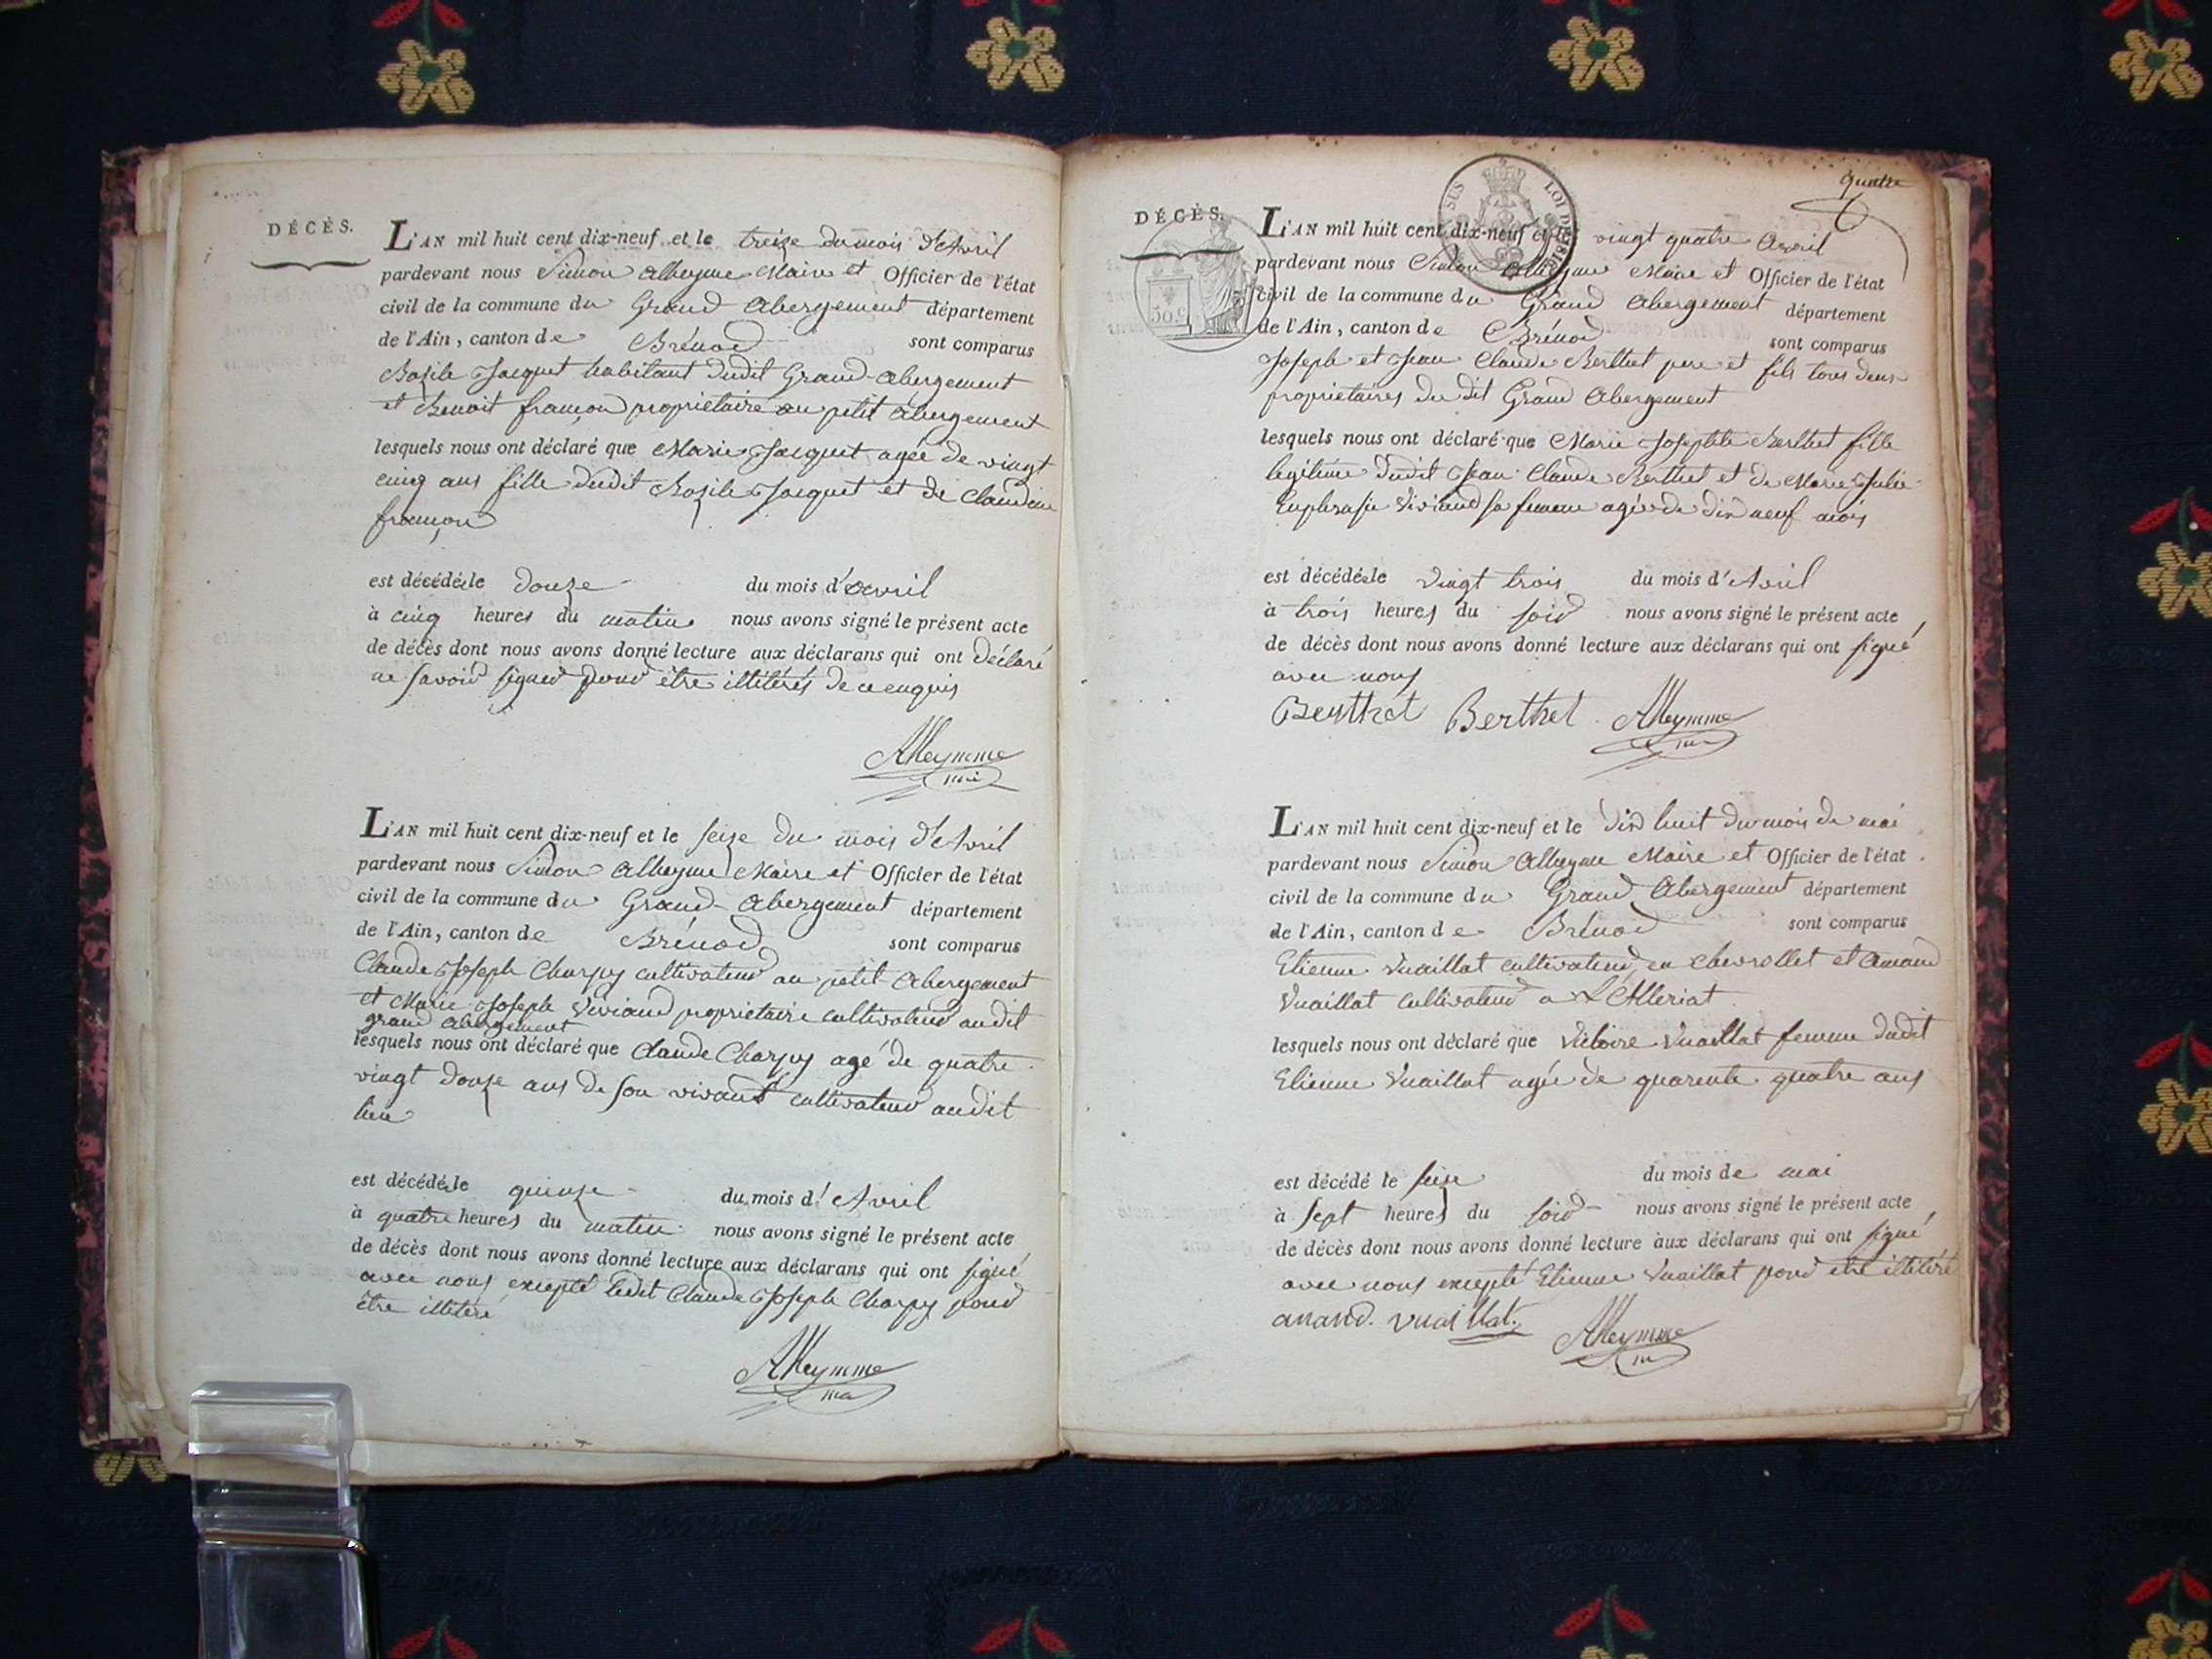 DÉCÈS.
L'AN mil huit cent dix-neuf et le treize du mois d'Avril
pardevant nous Simon Alleyme Maire et Officier de l'état
civil de la commune du Grand Abergement département
de l'Ain, canton de Brénod sont comparus
Bazile Jacquet habitant dudit Grand-Abergement
et Benoit françon propriétaire au petit Abergement
lesquels nous ont déclaré que Marie Jacquet agée de vingt
cinq ans fille dudit Bazile Jacquet et de Claudine
françon
est décédée le douze du mois d'avril
à cinq heures du matin nous avons signé le présent acte
de décès dont nous avons donné lecture aux déclarans qui ont déclaré
ne savoir signer pour être illitérés de ce enquis
Alleymme
L'AN mil huit cent dix-neuf et le seize du mois d'Avril
pardevant nous Simon Alleyme Maire et Officier de l'état
civil de la commune du Grand-Abergement département
de l'Ain, canton de Brénod sont comparus
Claude Joseph Charpy cultivateur au petit Abergement
et Marie Joseph Viviand propriétaire cultivateur audit
grand abergement
lesquels nous ont déclaré que Claude Charpy agé de quatre
vingt douze ans de son vivant cultivateur audit
lieu
est décédé le quinze du mois d'Avril
à quatre heures du matin nous avons signé le présent acte
de décès dont nous avons donné lecture aux déclarans qui ont signé
avec nous excepté ledit Claude Joseph Charpy pour
être illitéré
Alleymme
quatre
DÉCÈS.
SUS LOI DE 1816
50 c
L'AN mil huit cent dix-neuf et le vingt quatre Avril
pardevant nous Simon Alleyme Maire et Officier de l'état
civil de la commune du Grand Abergement département
de l'Ain, canton de Brénod sont comparus
Joseph et Jean Claude Berthet pere et fils tous deux
propriétaires du dit Grand Abergement
lesquels nous ont déclaré que Marie Josephte Berthet fille
legitime dudit Jean Claude Berthet et de Marie Julie
Euphrasie Viviand sa femme agée de dix neuf mois
est décédée le vingt trois du mois d'Avril
à trois heures du soir nous avons signé le présent acte
de décès dont nous avons donné lecture aux déclarans qui ont signé
avec nous
Berthet Berthet Alleymme
L'AN mil huit cent dix-neuf et le dix huit du mois de mai
pardevant nous Simon Alleyme Maire et Officier de l'état
civil de la commune du Grand Abergement département
de l'Ain, canton de Brénod sont comparus
Etienne Vuaillat cultivateur en chevrollet et Amand
Vuaillat cultivateur a L'Alleriat
lesquels nous ont déclaré que Victoire Vuaillat femme dudit
Etienne Vuaillat agée de quarente quatre ans
est décédé le seize du mois de mai
à sept heures du soir nous avons signé le présent acte
de décès dont nous avons donné lecture aux déclarans qui ont signé
avec nous excepté Etienne Vuaillat pour etre illitéré
amand. vuaillat. Alleymme